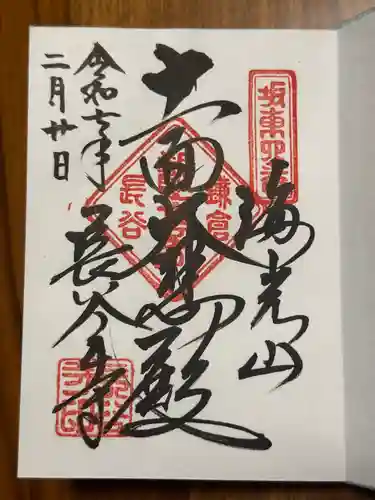 坂東四番
海光山
十一面大悲殿
鎌倉
長谷
令和七年
二月廿日
長谷寺